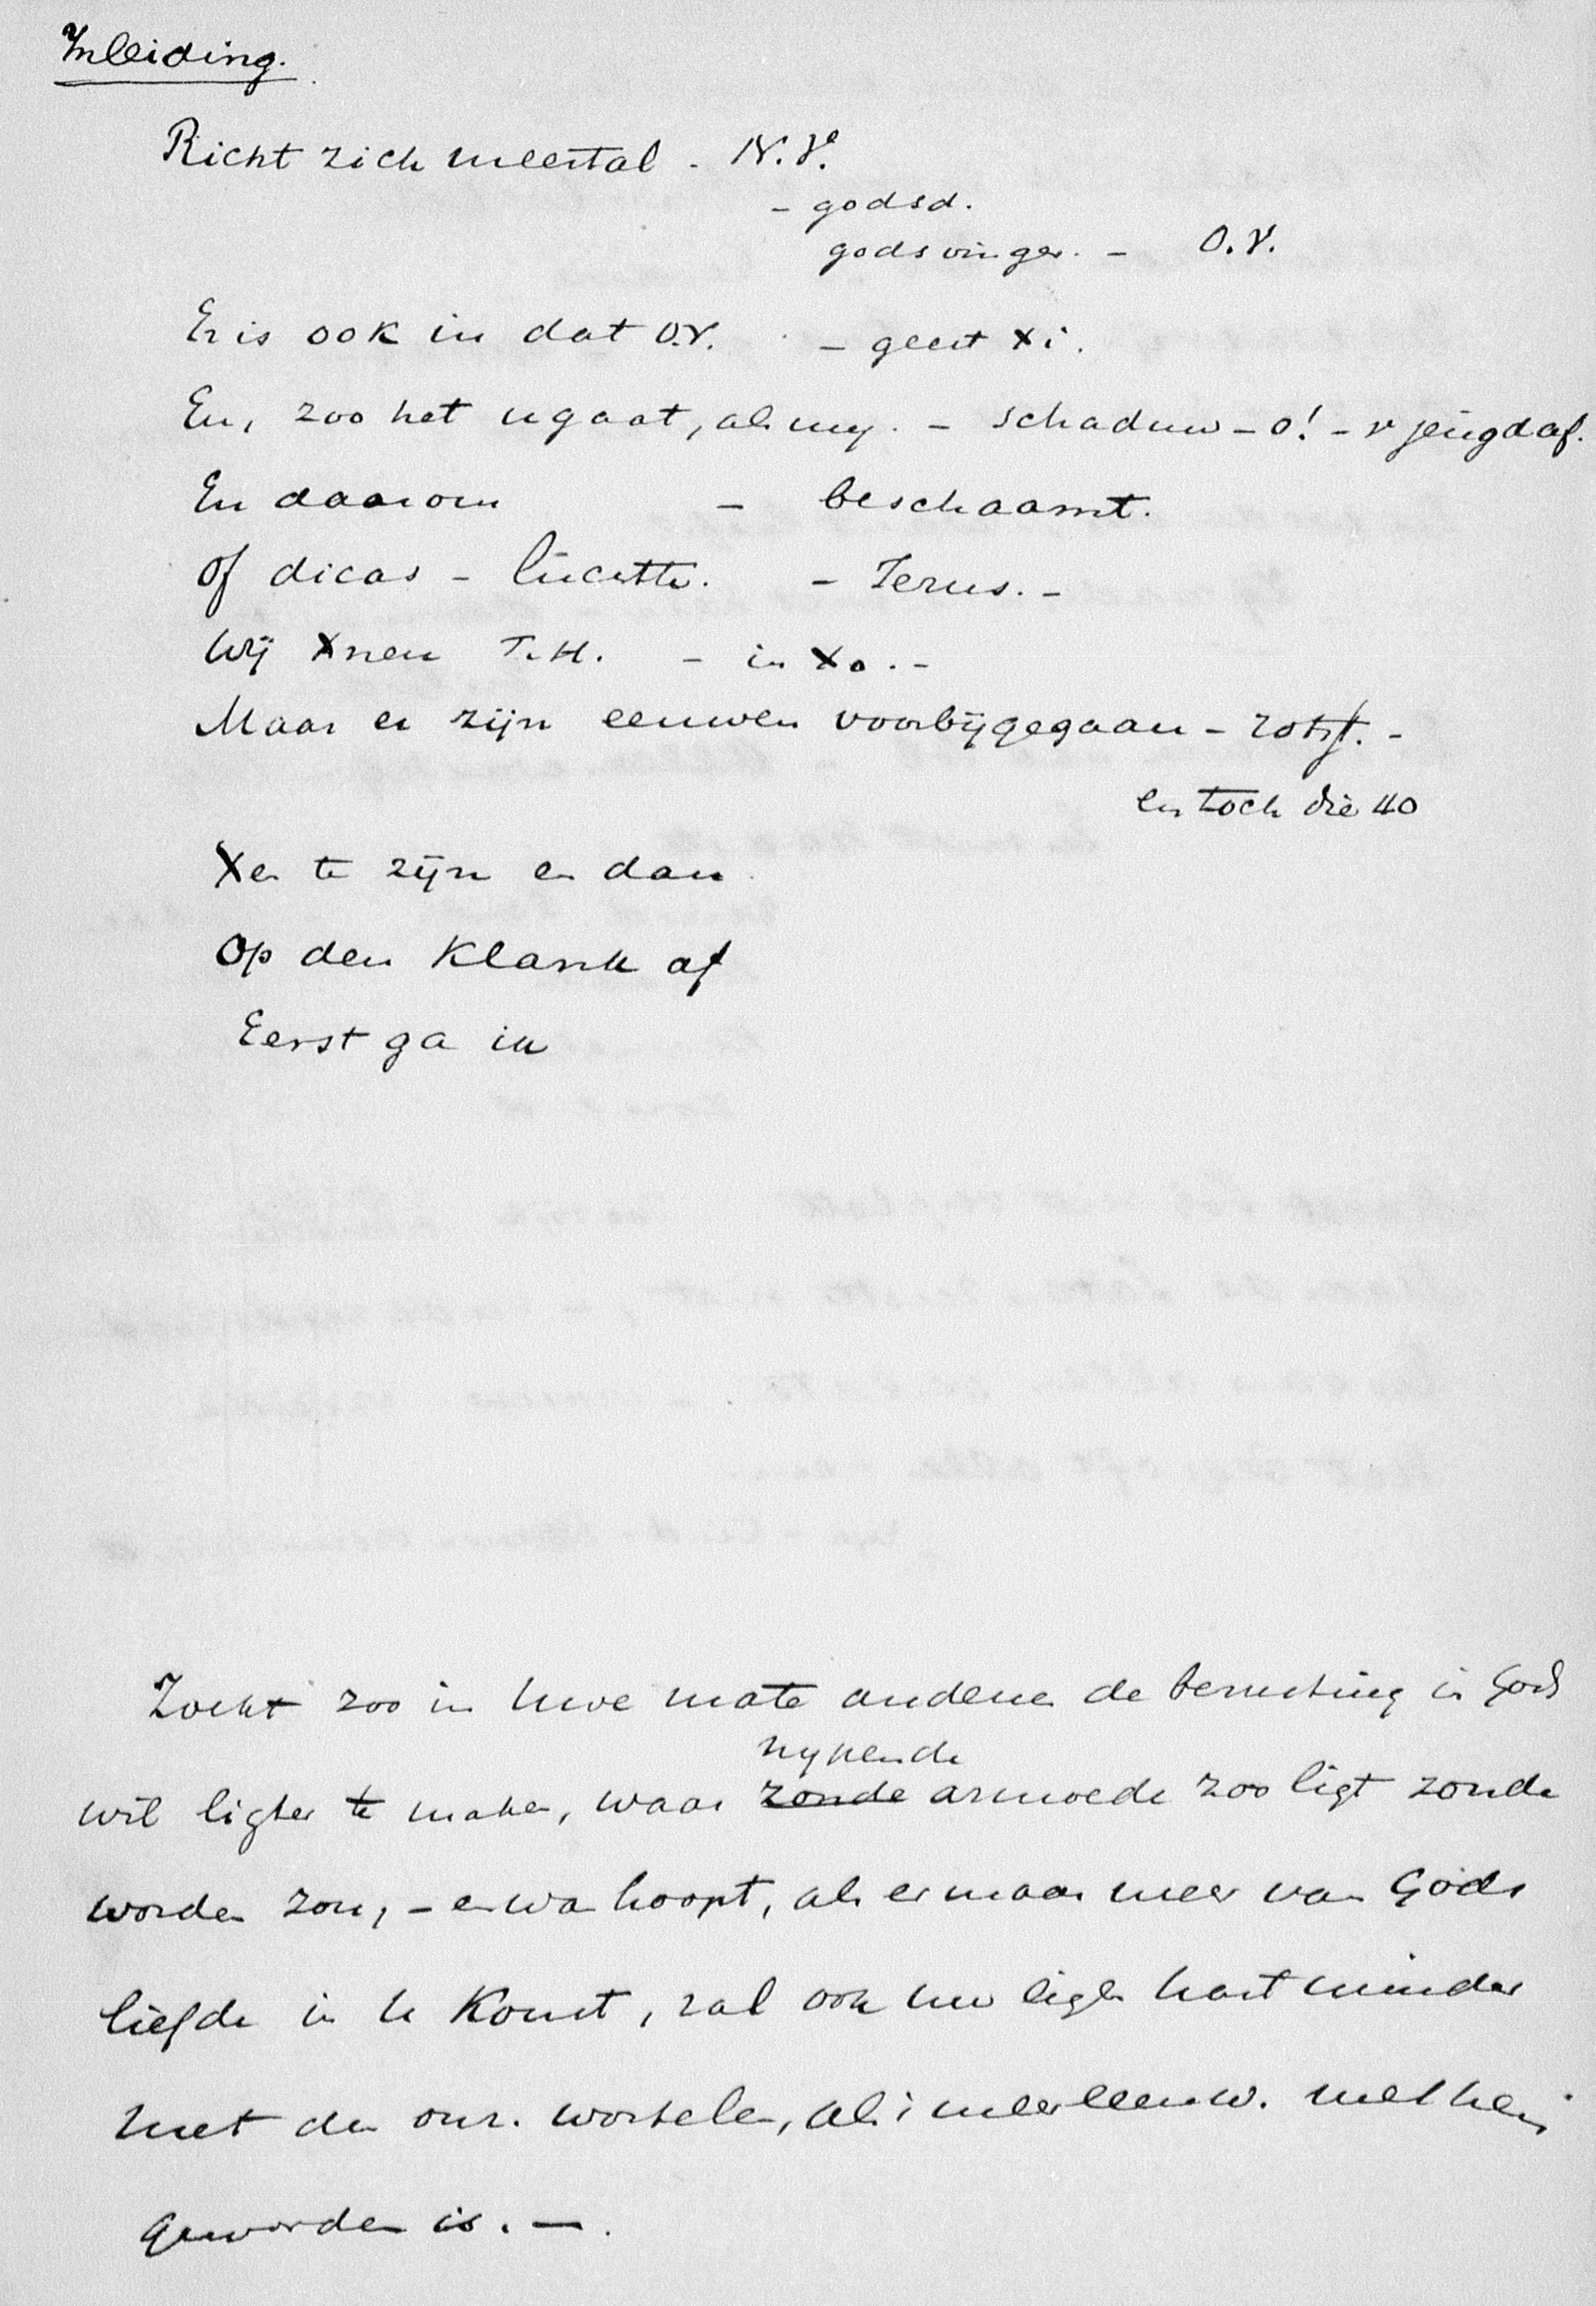 Inleiding.
Richt zich meestal - N.V.
- godsd.
godsvinger. - O.V.
Er is ook in dat O.V. - geest Xi.
En, zoo het u gaat, als my. - schaduw - o! - v jeugd af.
En daarom - beschaamt.
Of dicas - - Jerus. -
Wij Xnen T.H. - in Xo. -
Maar er zijn eeuwen voorbijgegaan - rotsf. -
en toch die 40
Xen te zijn en dan
Op den Klank af
Eerst ga ik
Zoekt zoo in uwe mate anderen de berusting in Gods
nypende
wil ligter te maken, waar zonde armoede zoo ligt zonde
worden zou, - en wan hoopt, als er maar meer van Gods
liefde in u Komt, zal ook uw eigen hart minder
met den onr. worstelen, als i meer eeuw. met hem
geworden is. -.